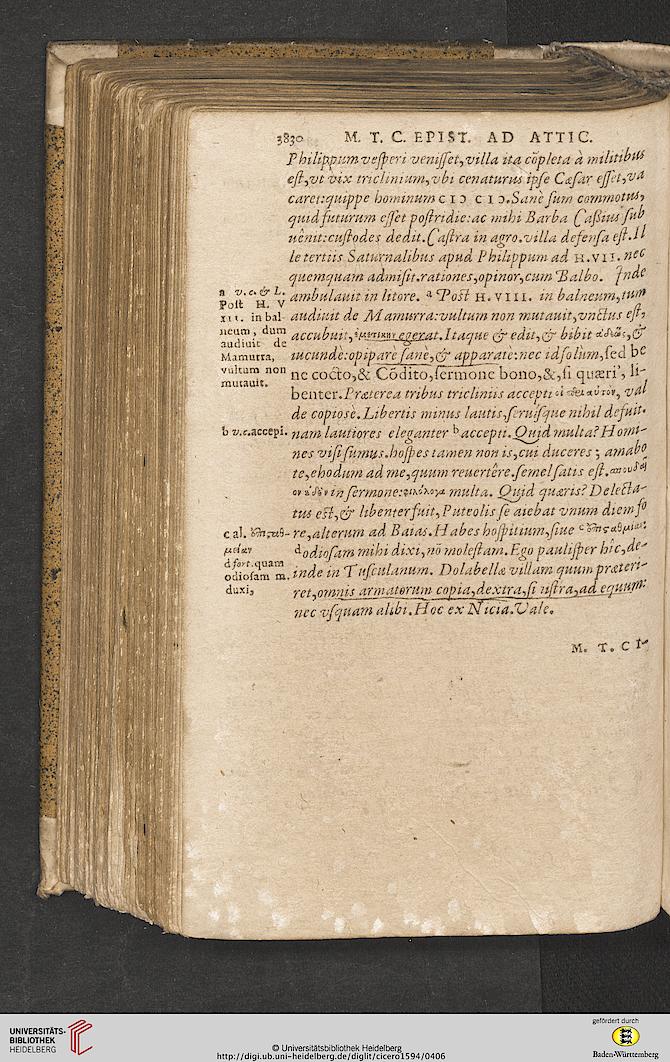 3830 M. T. C. EPIST. AD ATTIC.
Philippum vesperi venisset, villa ita cõpleta à militibus
est, vt vix triclinium, vbi cenaturus ipse Cæsar esset, va
caret: quippe hominum CIↃ CIↃ. Sanè sum commotus,
quid futurum esset postridie: ac mihi Barba Caßius sub
uênit: custodes dedit. Castra in agro. villa defensa est. Il
le tertiis Saturnalibus apud Philippum ad H. VII. nec
quemquam admisit. rationes, opinor, cum Balbo. Inde
ambulauit in litore. a Post H. VIII. in balneum, tum
audiuit de Mamurra: vultum non mutauit, vnctus est,
accubuit, ἐμετικὴν egerat. Itaque & edit, & bibit ἀδεῶς, &
iucundè: opiparè sanè, & apparatè: nec id solum, sed be
ne cocto, & Cõdito, sermone bono, &, si quæri', li-
benter. Præterea tribus tricliniis accepti οἱ περὶ αὐτὸν, val
de copiosè. Libertis minus lautis, seruisque nihil defuit.
nam lautiores eleganter b accepti. Quid multa? Homi-
nes visi sumus. hospes tamen non is, cui duceres; amabo
te, ehodum ad me, quum reuertêre. semel satis est. σπουδαῖ
ον οὐδὲν in sermone: φιλόλογα multa. Quid quæris? Delecta-
tus est, & libenter fuit, Puteolis se aiebat vnum diem fo
re, alterum ad Baias. Habes hospitium, siue c ἐπισταθμίαν:
d odiosam mihi dixi, nõ molestam. Ego paulisper hîc, de-
inde in Tusculanum. Dolabellæ villam quum præteri-
ret, omnis armatorum copia, dextra, sinistra, ad equum:
nec vsquam alibi. Hoc ex Nicia. Vale.
M. T. CI-
a v.c. & L.
Post H. V
III. in bal-
neum, dum
audiuit de
Mamurra,
vultum non
mutauit.
b v.c. accepi.
c al. ἐπισταθ-
μείαν
d fort. quam
odiosam m.
duxi,
UNIVERSITÄTS-
BIBLIOTHEK
HEIDELBERG
© Universitätsbibliothek Heidelberg
http://digi.ub.uni-heidelberg.de/diglit/cicero1594/0406
gefördert durch
Baden-Württemberg